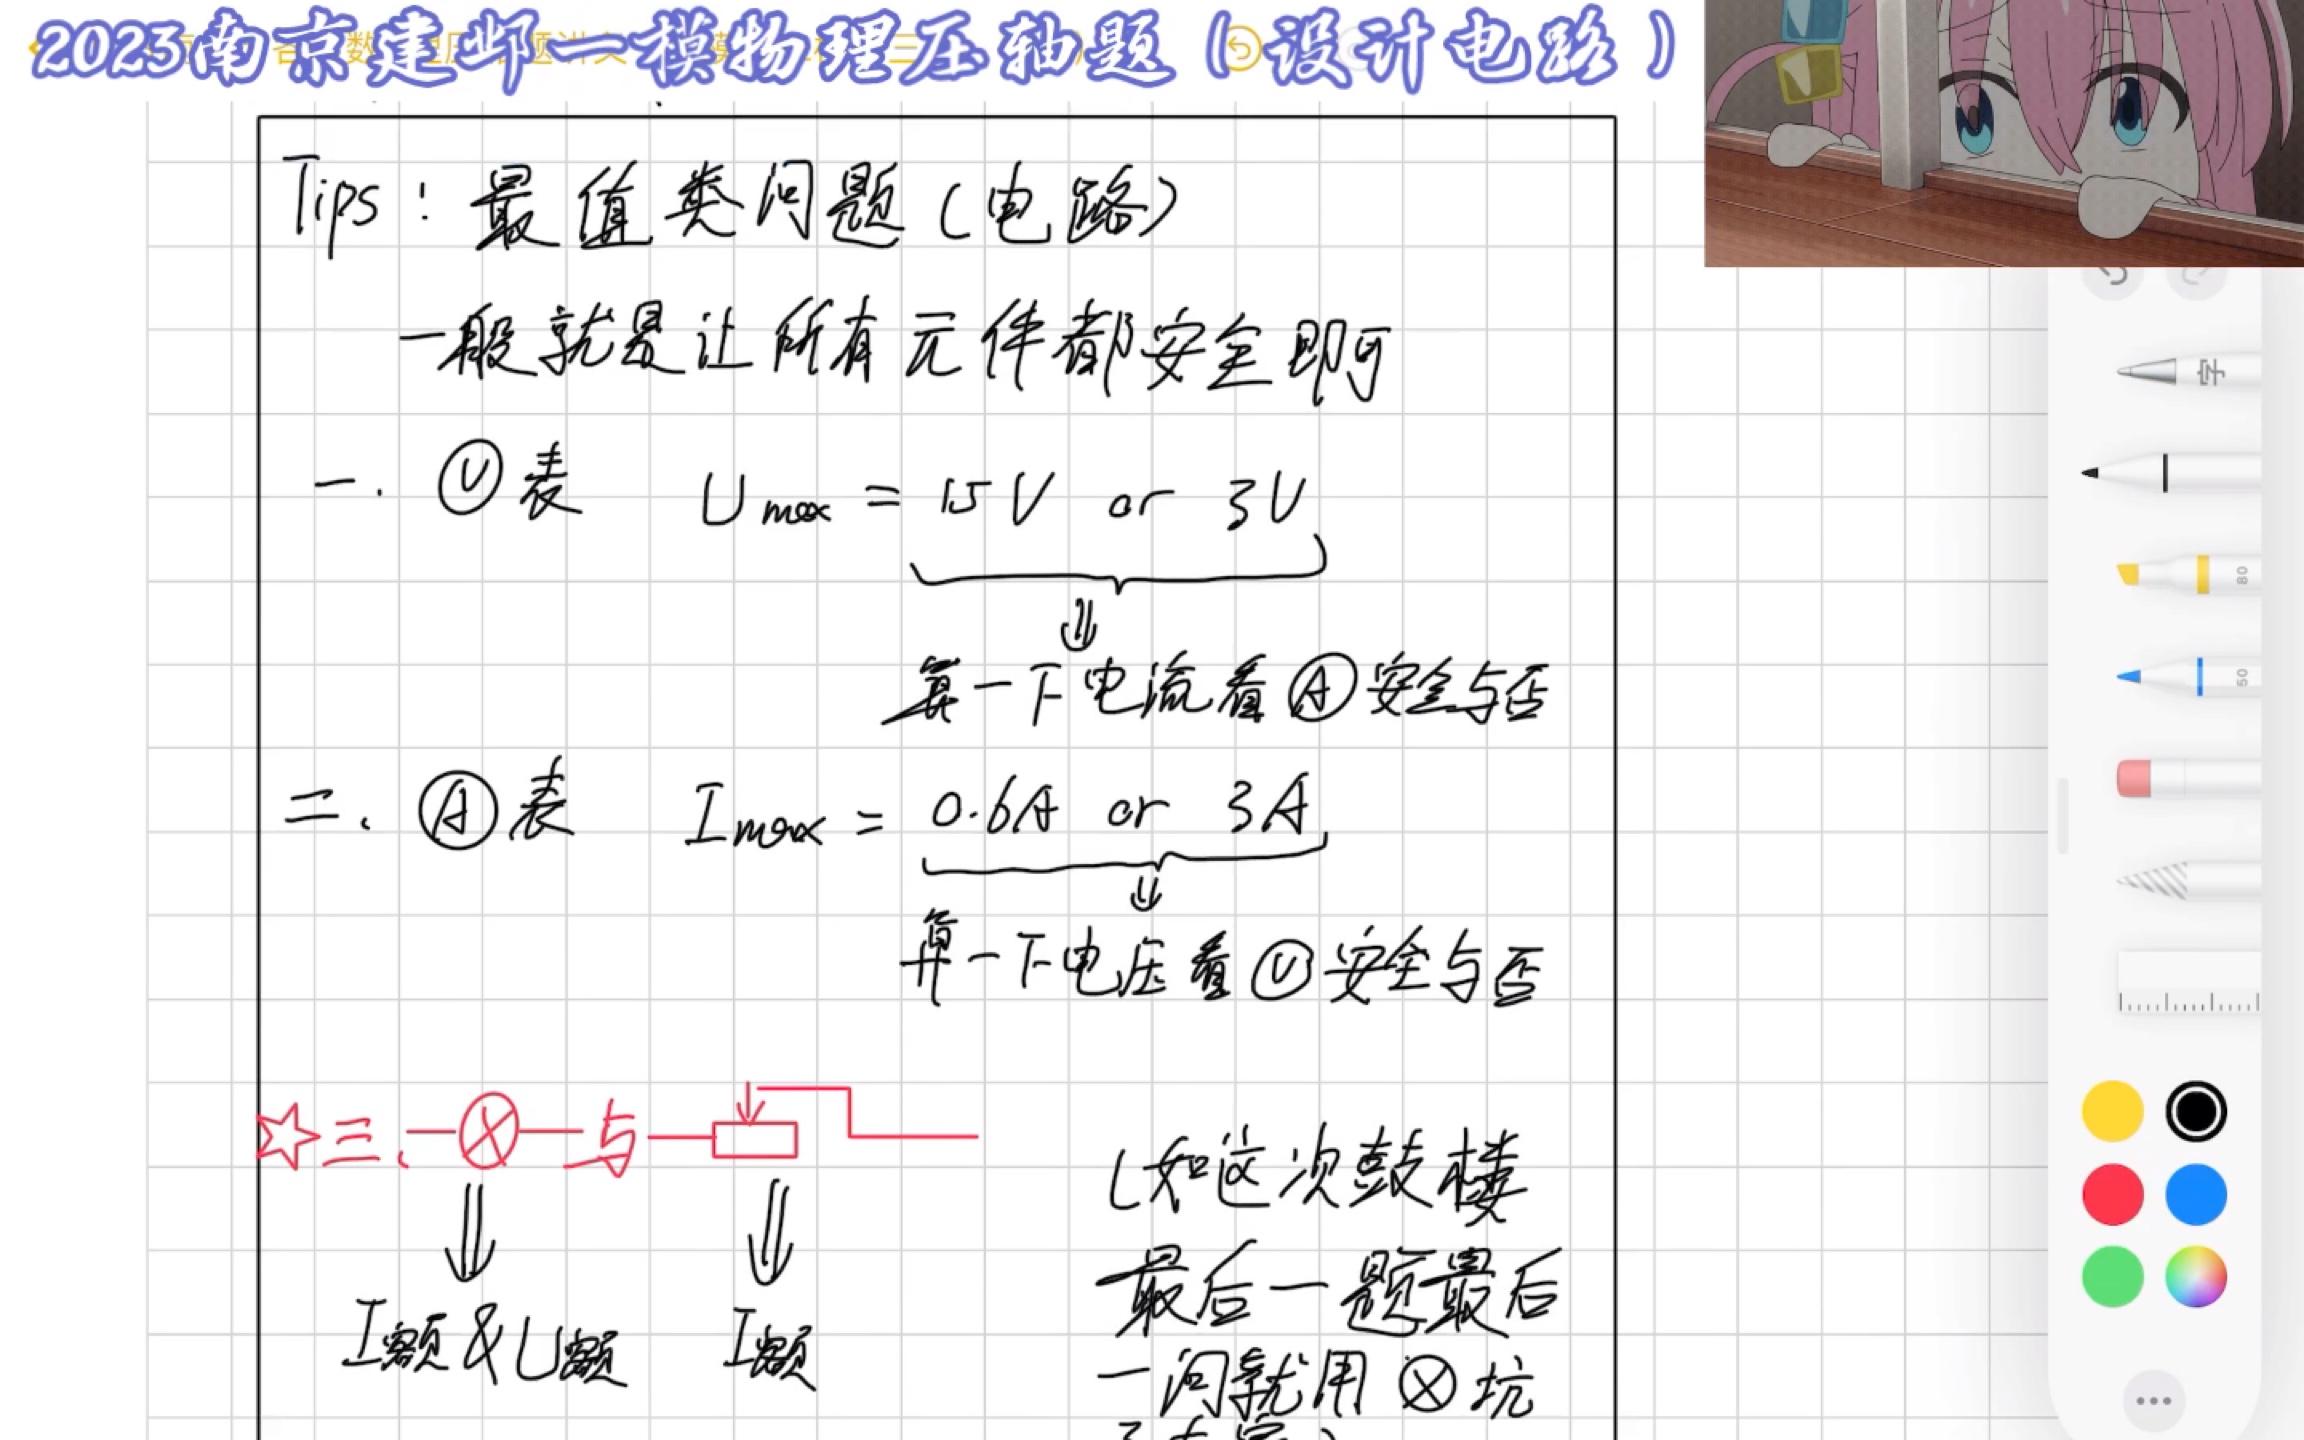 2023南京建邺一模物理压轴题（设计电路）
Tips：最值类问题（电路）
一般就是让所有元件都安全即可
一. Ⓥ表 Umax = 15V or 3V
⇓
算一下电流看Ⓐ安全与否
二、Ⓐ表 Imax = 0.6A or 3A
⇓
算一下电压看Ⓥ安全与否
☆三、⊗与
I额&U额 I额
（如这次鼓楼
最后一题最后
一问就用⊗坑
字
80
50